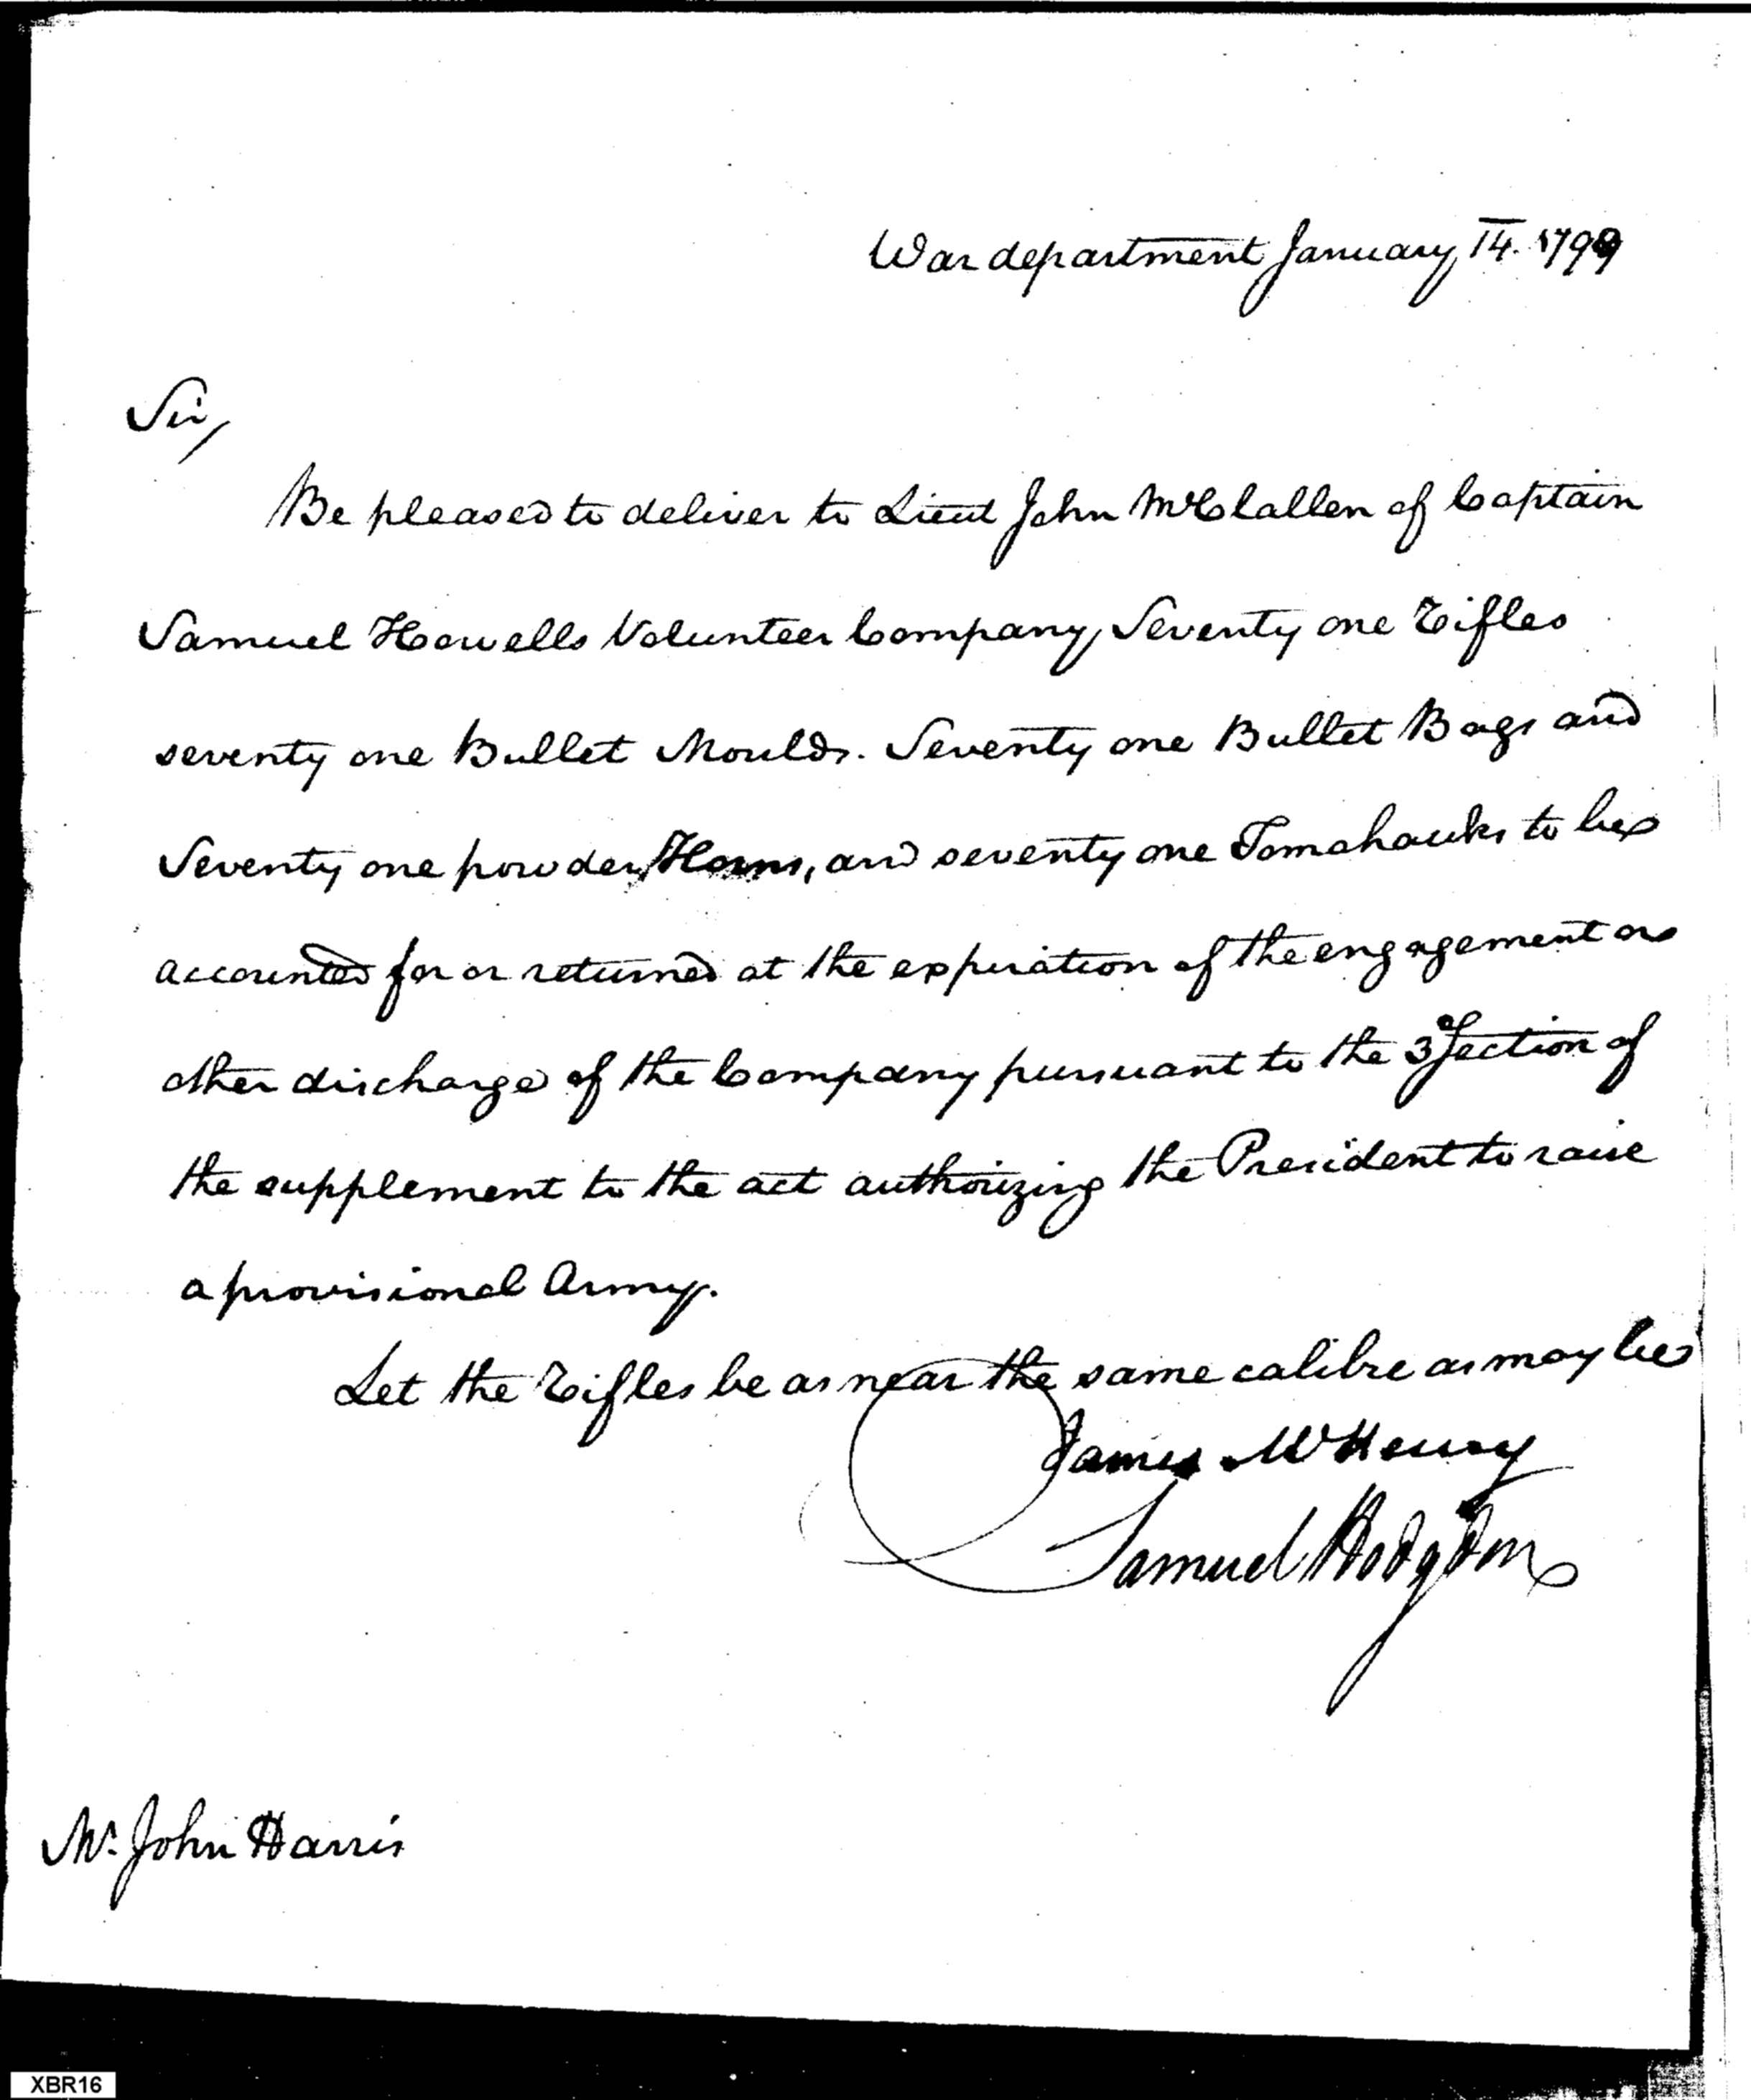 War department January 14. 1799
Sir,
Be pleased to deliver to Lieut John McClallen of Captain
Samuel Howells Volunteer Company, Seventy one Rifles
seventy one Bullet Moulds. Seventy one Bullet Bags and
Seventy one powder Horns, and seventy one Tomahauks to be
accounted for or returned at the expiration of the engagement or
other discharge of the Company pursuant to the 3d Section of
the supplement to the act authorizing the President to raise
a provisional Army.
Let the Rifles be as near the same calibre as may be
James McHenry
Samuel Hodgdon
Mr. John Harris
XBR16